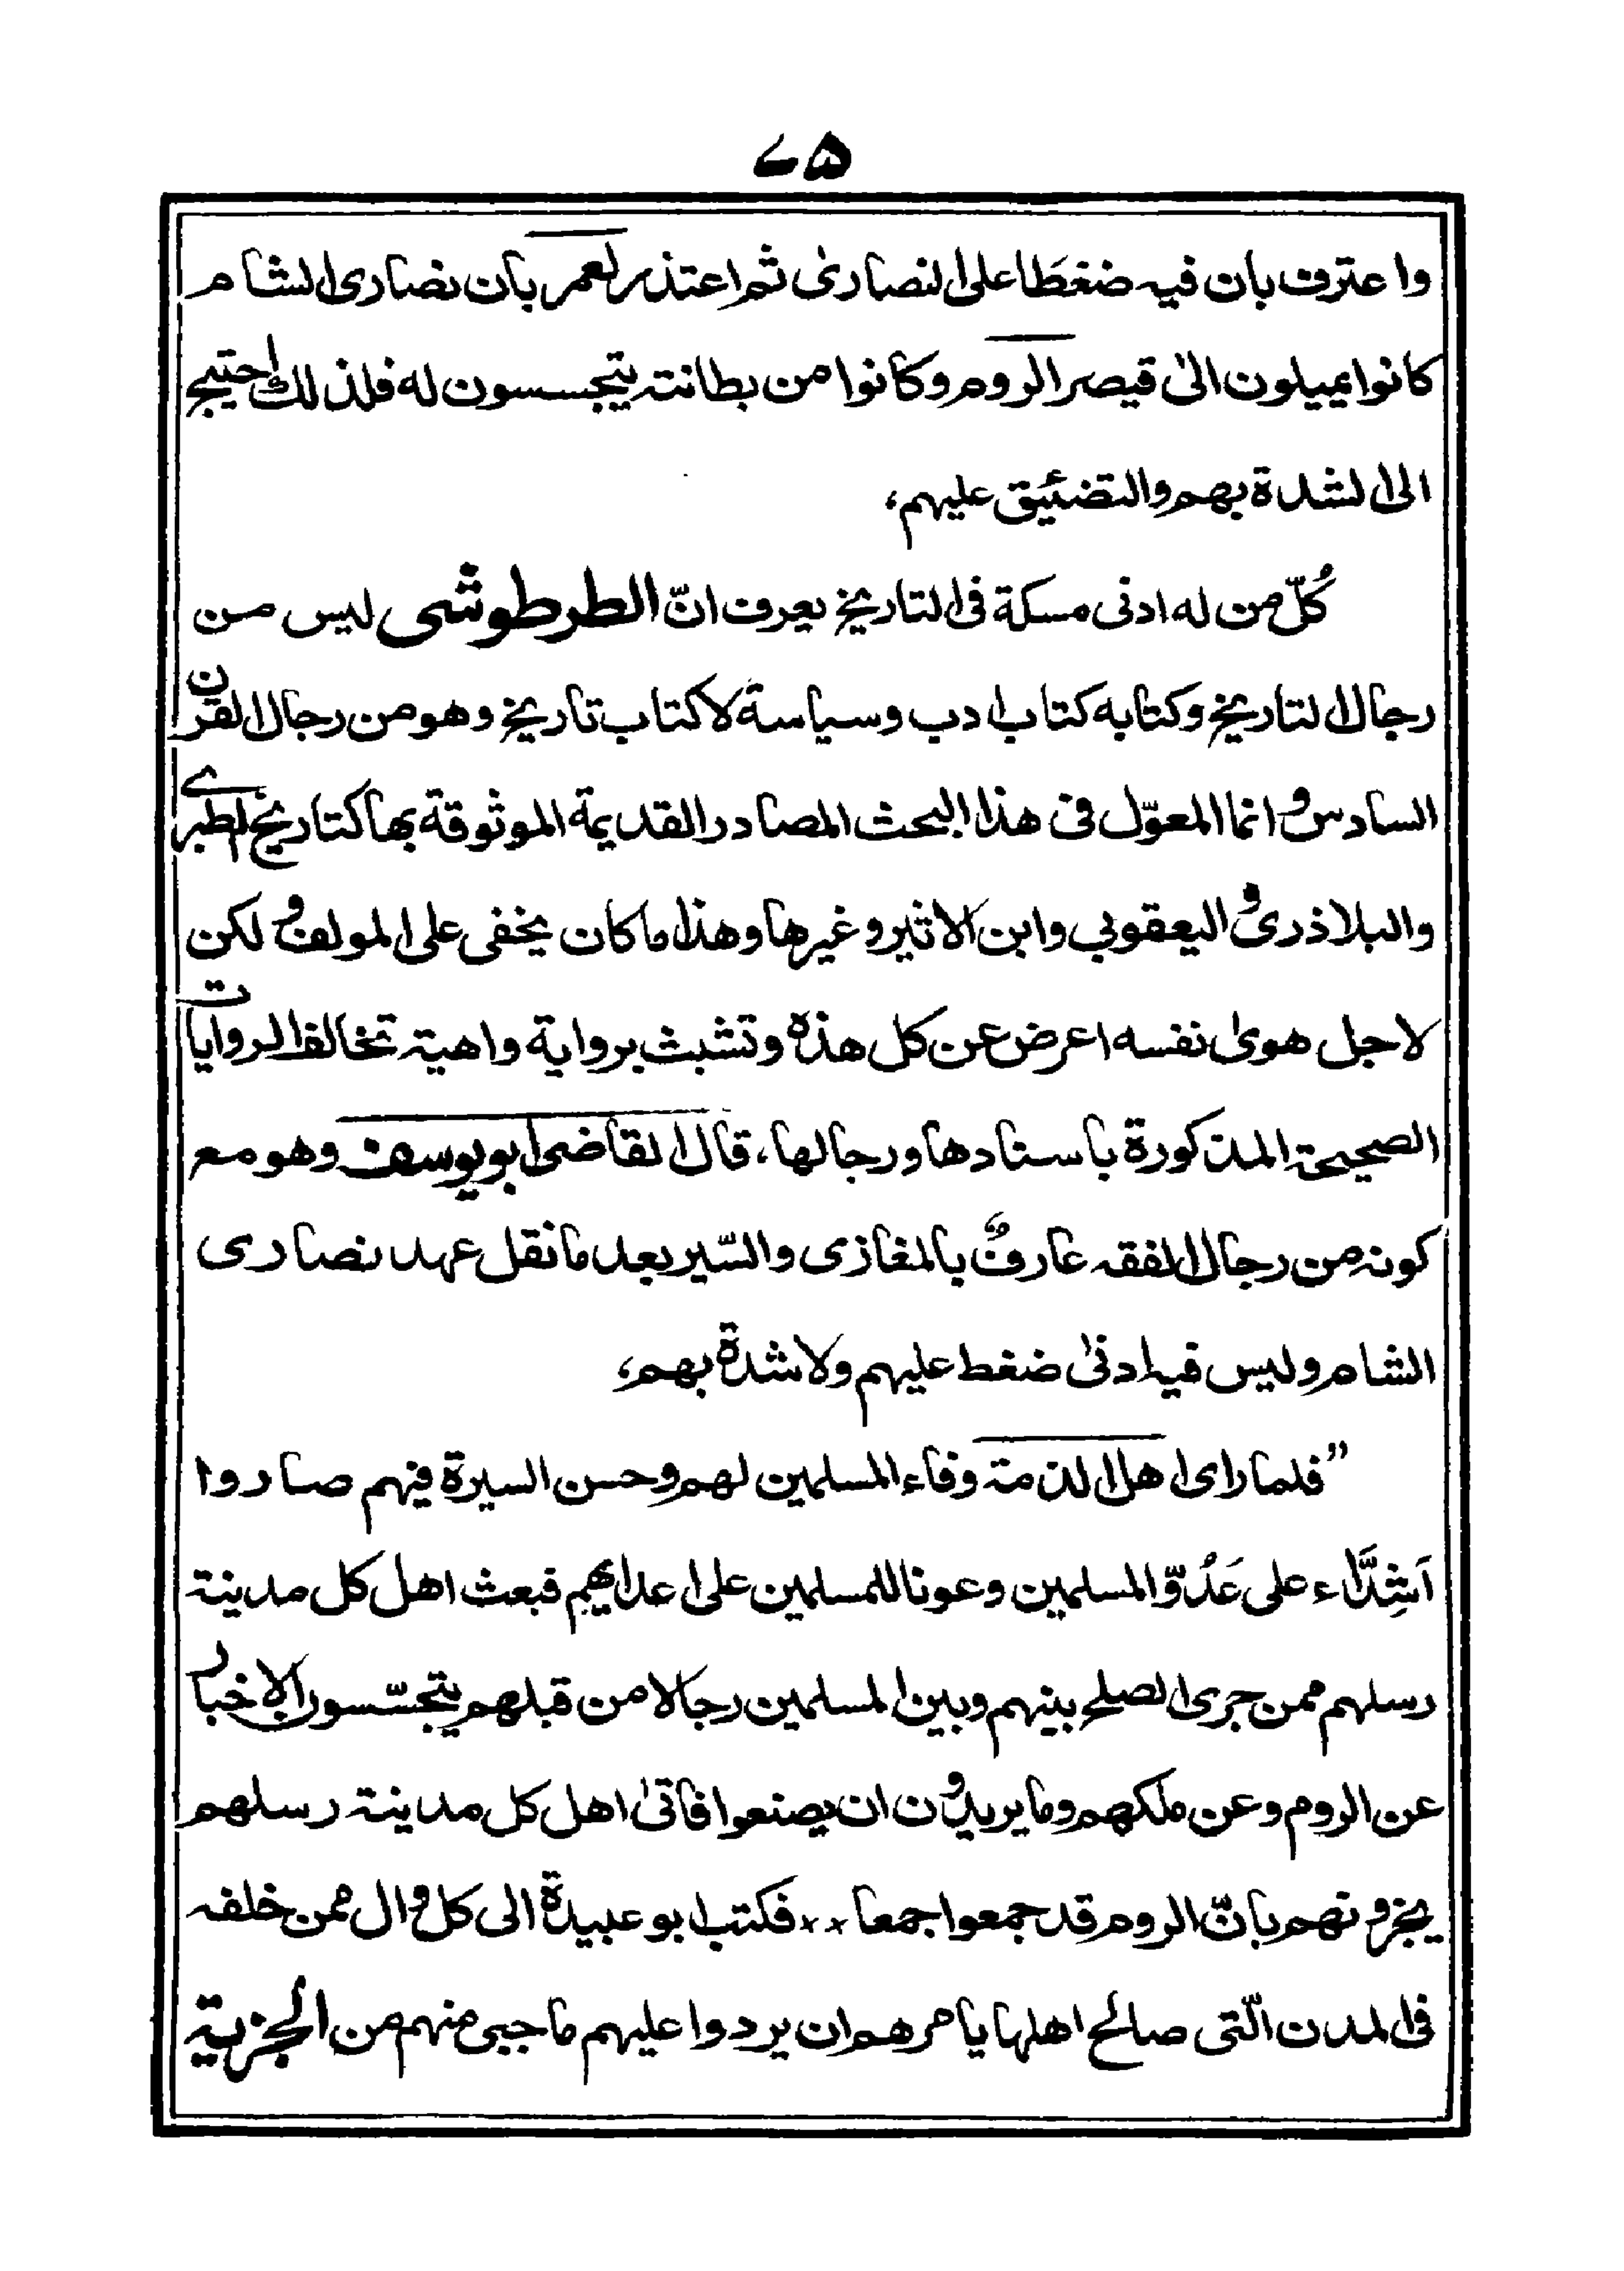 ٤٥
واعترف بان فيه ضغطا على النصارى ثم اعتذر لعمر بان نصارى الشام
كانوا يميلون الى قيصر الروم وكانوا من بطانته يتجسسون له فلذلك احتيج
الى الشدة بهم والتضئيق عليهم،
كُلّ من له ادنى مسكة فى التاريخ يعرف انّ الطرطوشى ليس من
رجال التاريخ وكتابه كتاب ادب وسياسة لا كتاب تاريخ وهو من رجال القرن
السادس وانما المعوّل فى هذا البحث المصادر القديمة الموثوقة بها كتاريخ الطبرى
والبلاذرى واليعقوبي وابن الاثير وغيرها وهذا ما كان يخفى على المولف ولكن
لاجل هوى نفسه اعرض عن كل هذه وتشبث برواية واهية تخالف الروايات
الصحيحة المذكورة باسنادها ورجالها، قال القاضى ابو يوسف وهو مع
كونه من رجال الفقه عارفٌ بالمغازى والسّير بعد ما نقل عهد نصارى
الشام وليس فيه ادنىٰ ضغط عليهم ولا شدة بهم،
”فلما راى اهل الذمة وفاء المسلمين لهم وحسن السيرة فيهم صاروا
اَشِدَّاء على عَدُوّ المسلمين وعونا للمسلمين على اعدايهم فبعث اهل كل مدينة
رسلهم ممن جرى الصلح بينهم وبين المسلمين رجالا من قبلهم يتجسّسون الاخبار
عن الروم وعن ملكهم وما يريدون ان يصنعوا فاتىٰ اهل كل مدينة رسلهم
يخبرونهم بانّ الروم قد جمعوا جمعا ×× فكتب ابو عبيدة الى كل وال ممن خلفه
فى المدن الّتى صالح اهلها يامرهم ان يردوا عليهم ما جبى منهم من الجزية